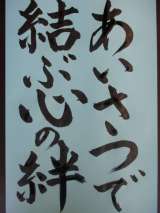 あいさつで
結ぶ心の絆